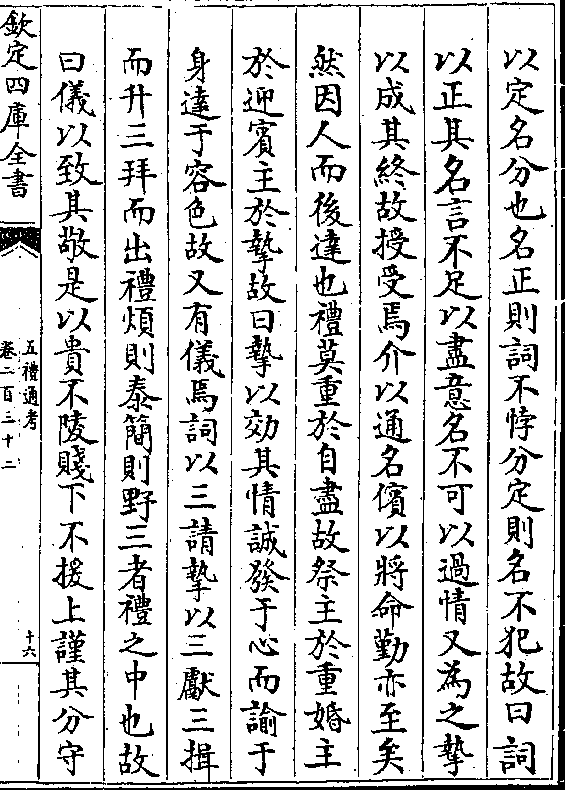 以定名分也名正則詞不悖分定則名不犯故曰詞
以正其名言不足以盡意名不可以過情又為之摯
以成其終故授受焉介以通名儐以將命勤亦至矣
然因人而後達也禮莫重於自盡故祭主於重婚主
於迎賓主於摯故曰摯以効其情誠發于心而諭于
身達于容色故又有儀焉詞以三請摯以三獻三揖
而升三拜而出禮煩則泰簡則野三者禮之中也故
曰儀以致其敬是以貴不陵賤下不援上謹其分守
欽定四庫全書
五禮通考
卷二百三十二
十六